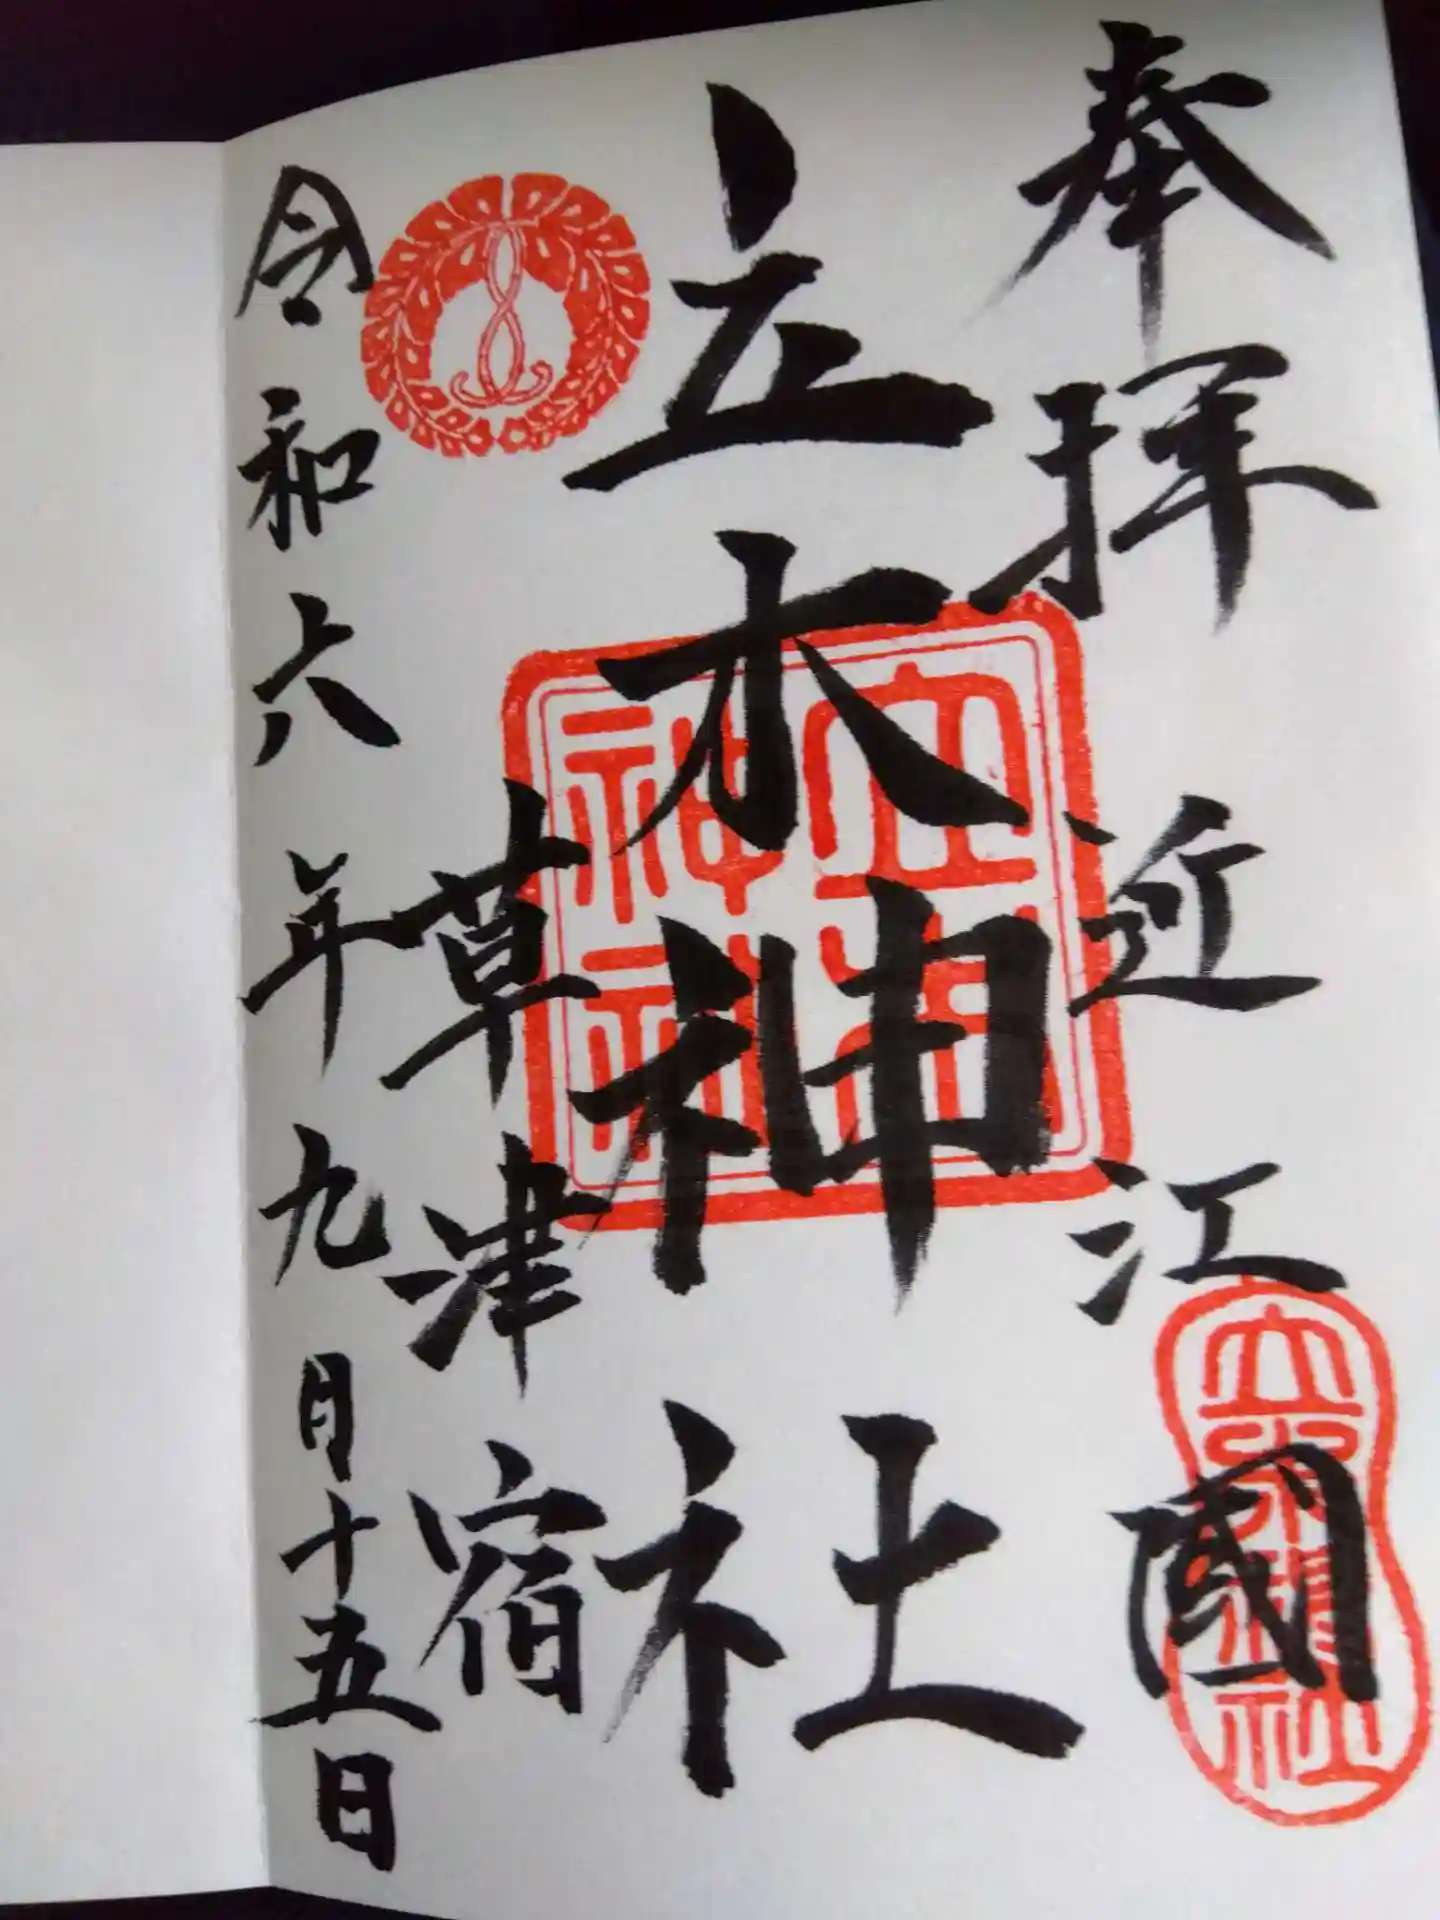 奉拝
近江國
立木神社
草津宿
令和六年九月十五日
立木神社